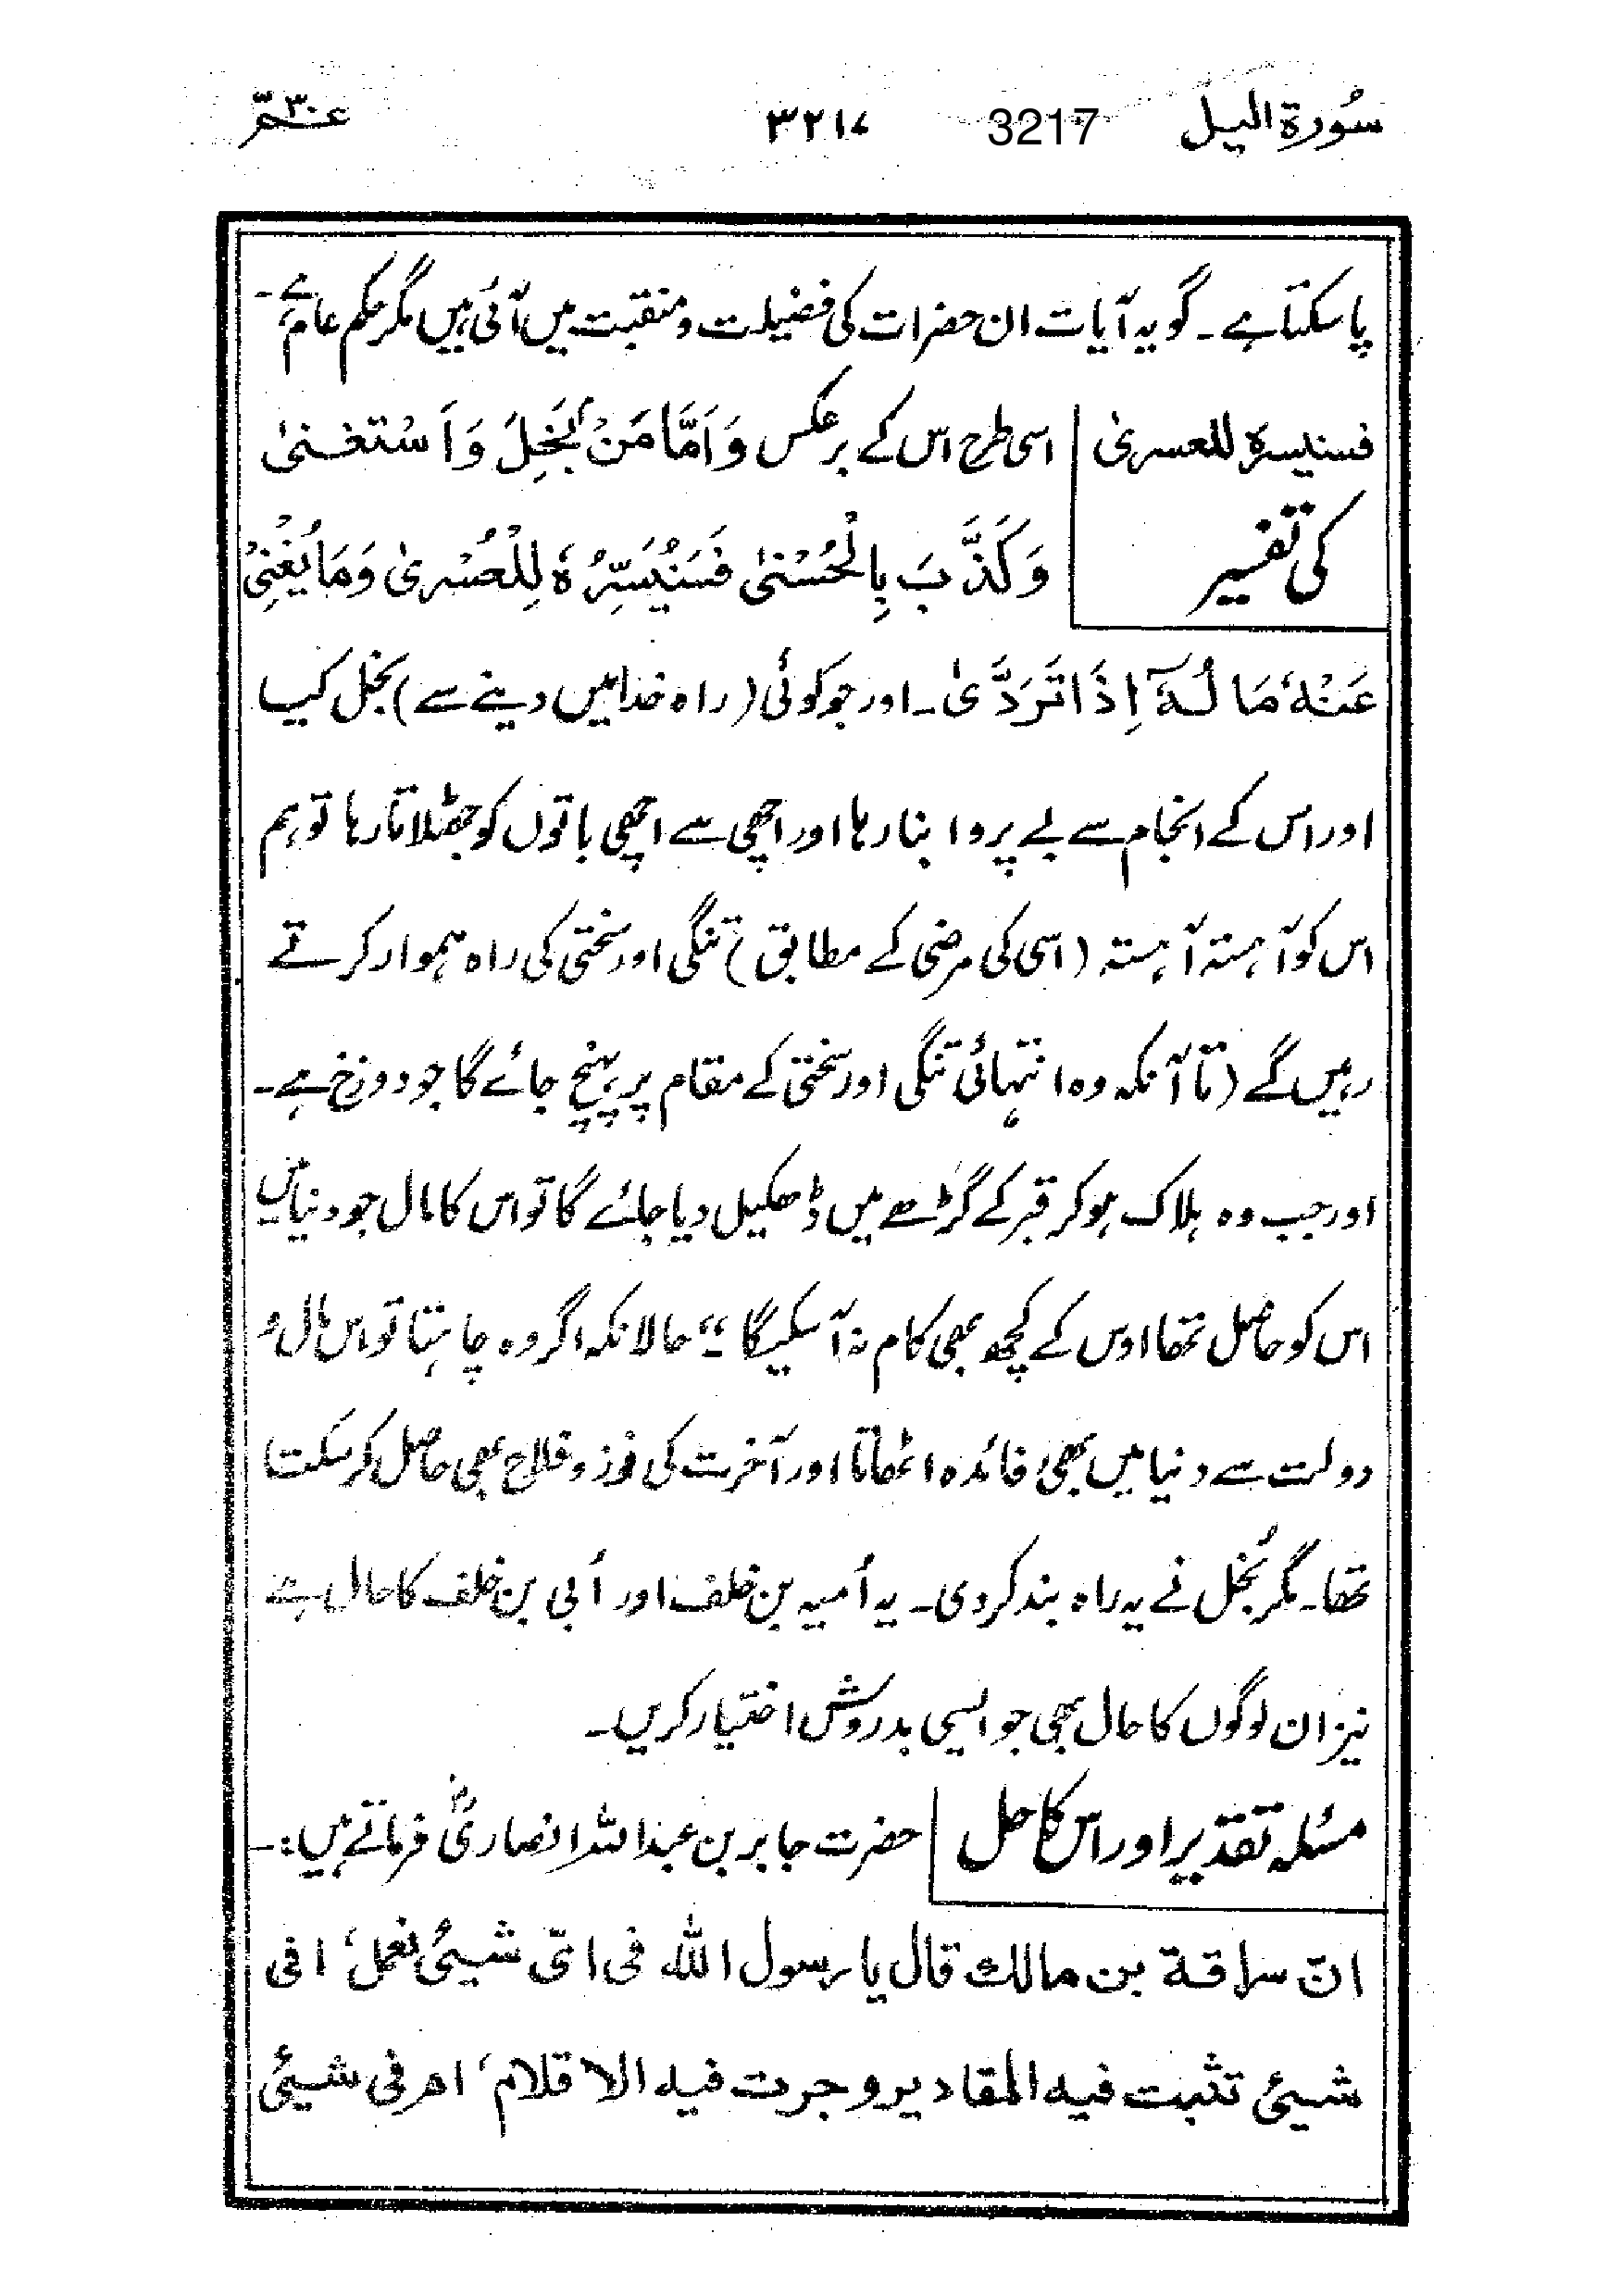 سُورۃ الیل 3217 ۳۲۱۷ عـمّ ۳۰
پاسکتا ہے۔ گو یہ آیات ان حضرات کی فضیلت و منقبت میں آئی ہیں مگر حکم عام ہے۔
فسنیسرہ للعسریٰ اسی طرح اس کے برعکس وَاَمَّا مَنْ بَخِلَ وَاَسْتَغْنیٰ
کی تفسیر وَكَذَّبَ بِالْحُسْنیٰ فَسَنُیَسِّرُہٗ لِلْعُسْریٰ وَمَا یُغْنِیْ
عَنْہُ مَا لُہٗٓ اِذَا تَرَدَّیٰ۔ اور جو کوئی (راہ خدا میں دینے سے) بخل کیا
اور اس کے انجام سے بے پروا بنا رہا اور اچھی سے اچھی باتوں کو جھٹلاتا رہا تو ہم
اس کو آہستہ آہستہ (اسی کی مرضی کے مطابق) تنگی اور سختی کی راہ ہموار کرتے
رہیں گے (تا آنکہ وہ انتہائی تنگی اور سختی کے مقام پر پہنچ جائے گا جو دوزخ ہے۔
اور جب وہ ہلاک ہو کر قبر کے گڑھے میں ڈھکیل دیا جائے گا تو اس کا مال جو دنیا میں
اس کو حاصل تھا اوس کے کچھ بھی کام نہ آسکیگا۔“ حالانکہ اگر وہ چاہتا تو اس مال و
دولت سے دنیا میں بھی فائدہ اٹھاتا اور آخرت کی فوز و فلاح بھی حاصل کر سکتا
تھا۔ مگر بُخل نے یہ راہ بند کر دی۔ یہ اُمیہ بن خلف اور اُبی بن خلف کا حال ہے
نیز ان لوگوں کا حال بھی جو ایسی بد روش اختیار کریں۔
مسئلہ تقدیر اور اس کا حل حضرت جابر بن عبداللہ انصاریؓ فرماتے ہیں:۔
انّ سراقۃ بن مالك قال یا رسول اللہ فی ایّ شیئٍ نعمل‘ افی
شیئ تثبت فیہ المقادیر و جرت فیہ الاقلام‘ ام فی شیئی